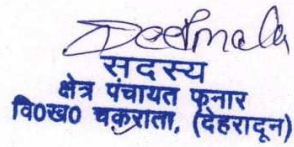 Deepmala
सदस्य
क्षेत्र पंचायत फुनार
वि०ख० चकराता, (देहरादून)